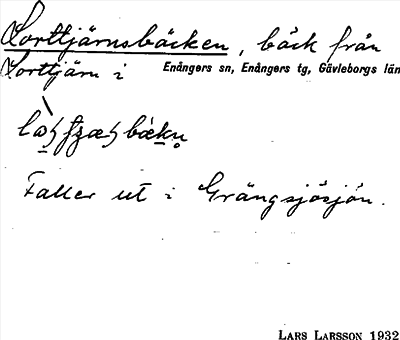 Lorttjärnsbäcken, bäck från
Lorttjärn i Enångers sn, Enångers tg, Gävleborgs län
Faller ut i Grängsjösjön.
LARS LARSSON 1932